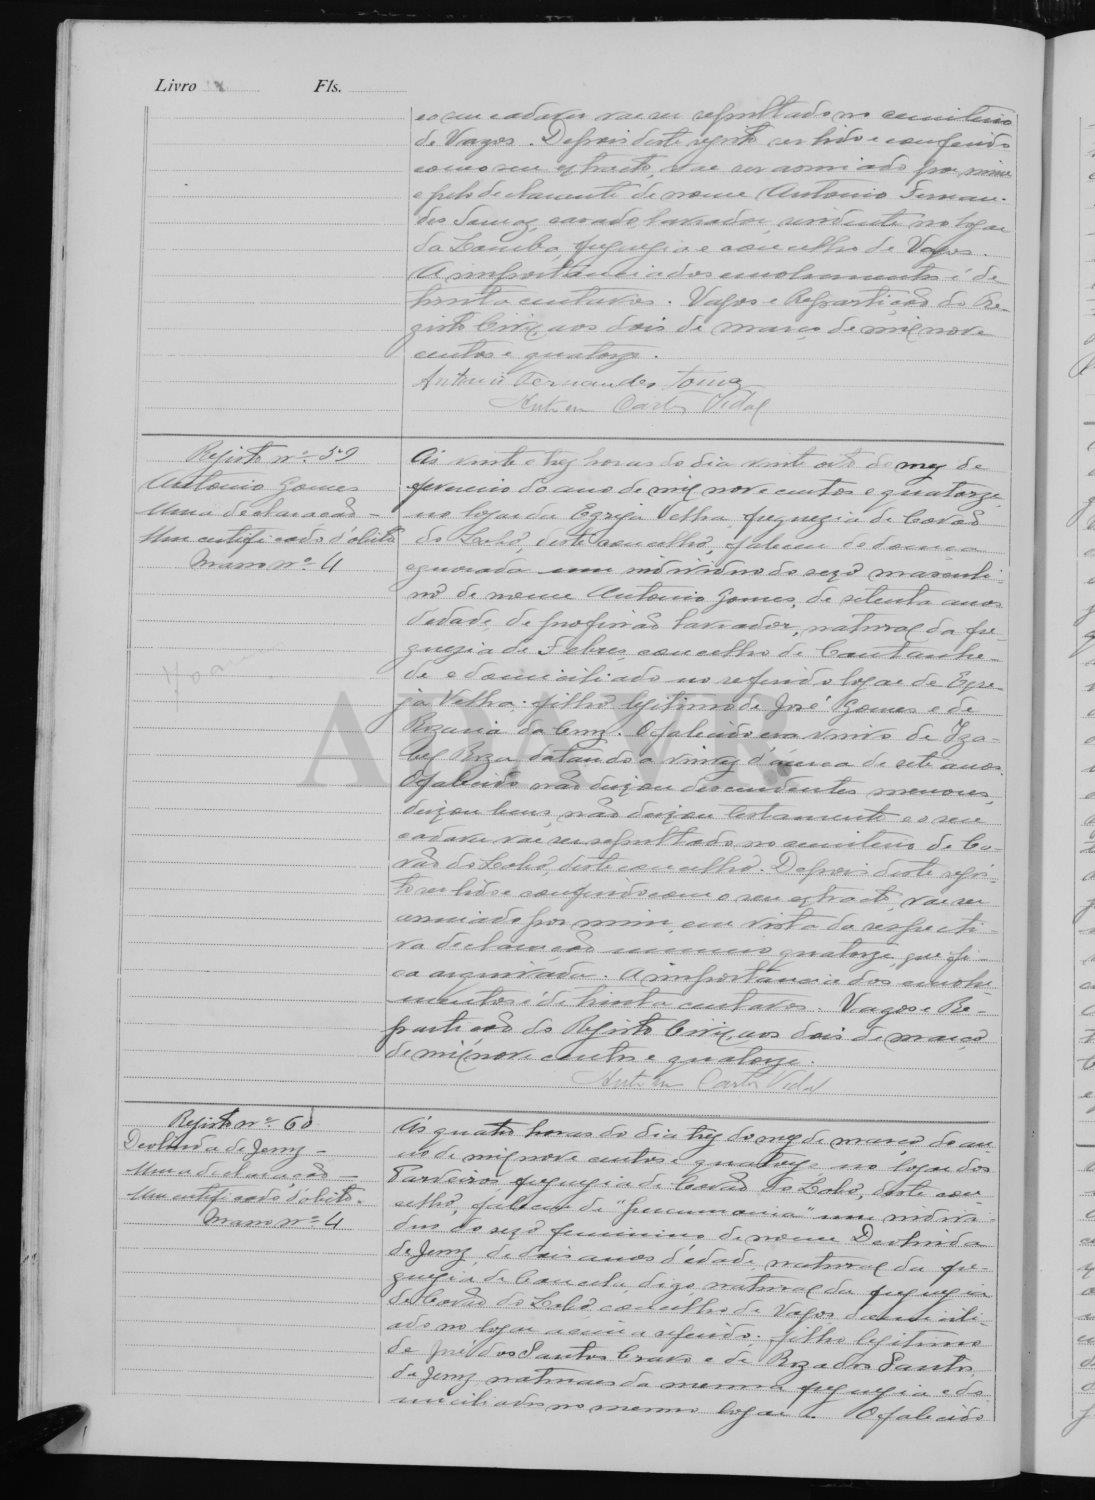 Livro Fls.
e o seu cadaver vae ser sepultado no cemiterio
de Vagos. Depois deste registo ser lido e conferido
com o seu extracto, vae ser assinado por mim
e pelo declarante de nome Antonio Fernan-
des Tomaz, casado, lavrador, residente no logar
da Lomba, freguezia e concelho de Vagos.
A importancia dos emolumentos é de
trinta centavos. Vagos e Repartição do Re-
gisto Civil, aos dois de março de mil nove
centos e quatorze.
Antonio Fernandes Tomaz
Vidal
Registo nº 59
Antonio Gomes
Uma declaração -
Um certificado d'obito
Masso nº 4
Ás vinte e trez horas do dia vinte oito do mez de
fevereiro do ano de mil nove centos e quatorze,
no logar da Egreja Velha freguezia de Covão
do Lobo, deste concelho, faleceu de doença
egnorada um individuo do sexo masculi-
no de nome Antonio Gomes, de setenta anos
d'edade, de profissão lavrador, natural da fre-
guezia de Febres, concelho de Cantanhe-
de e domiciliado no referido logar de Egre-
ja Velha, filho legitimo de José Gomes e de
Rozaria da Cruz. O falecido era viuvo de Iza-
bel Roza, datando a viuvez d'àcerca de sete anos.
O falecido não deixou descendentes menores,
deixou bens, não deixou testamento e o seu
cadaver vae ser sepultado no cemiterio de Co-
vão do Lobo, deste concelho. Depois deste regis-
to ser lido e conferido com o seu extracto, vae ser
assinado por mim em vista da respecti-
va declaração numero quatorze, que fi-
ca arquivada. A importancia dos emolu-
mentos é de trinta centavos. Vagos e Re-
partição do Registo Civil, aos dois de março
de mil nove centos e quatorze.
Vidal
Registo nº 60
Deolinda de Jezuz -
Uma declaração -
Um certificado d'obito.
Masso nº 4
Ás quatro horas do dia trez do mez de março do an-
no de mil nove centos e quatorze, no logar dos
Pardeiros freguezia de Covão do Lobo, deste con-
celho, faleceu de "pneumonia" um indivi-
duo do sexo feminino de nome Deolinda
de Jezuz, de dois anos d'edade, natural da fre-
guezia de Calvão, digo, natural da freguezia
de Covão do Lobo, concelho de Vagos, domicili-
ado no logar acima referido, filho legitimo
de José dos Santos Cravo e de Roza dos Santos
de Jezuz, naturaes da mesma freguezia e do-
miciliados no mesmo logar. O falecido
AVAVR